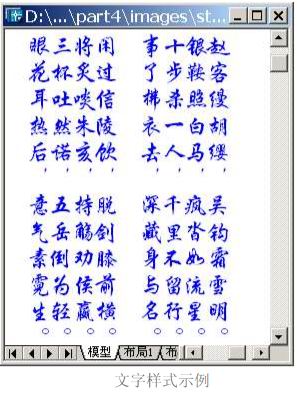 D:\...\part4\images\st...
赵客缦胡缨，
吴钩霜雪明。
银鞍照白马，
疯沓如流星。
十步杀一人，
千里不留行。
事了拂衣去，
深藏身与名。
闲过信陵饮，
脱剑膝前横。
将炙啖朱亥，
持觞劝侯赢。
三杯吐然诺，
五岳倒为轻。
眼花耳热后，
意气素霓生。
模型 布局1 布
文字样式示例